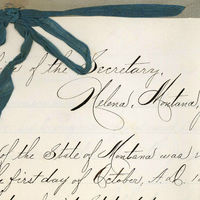 of the Secretary,
Helena, Montana,
of the State of Montana was
first day of October, A.D. 1